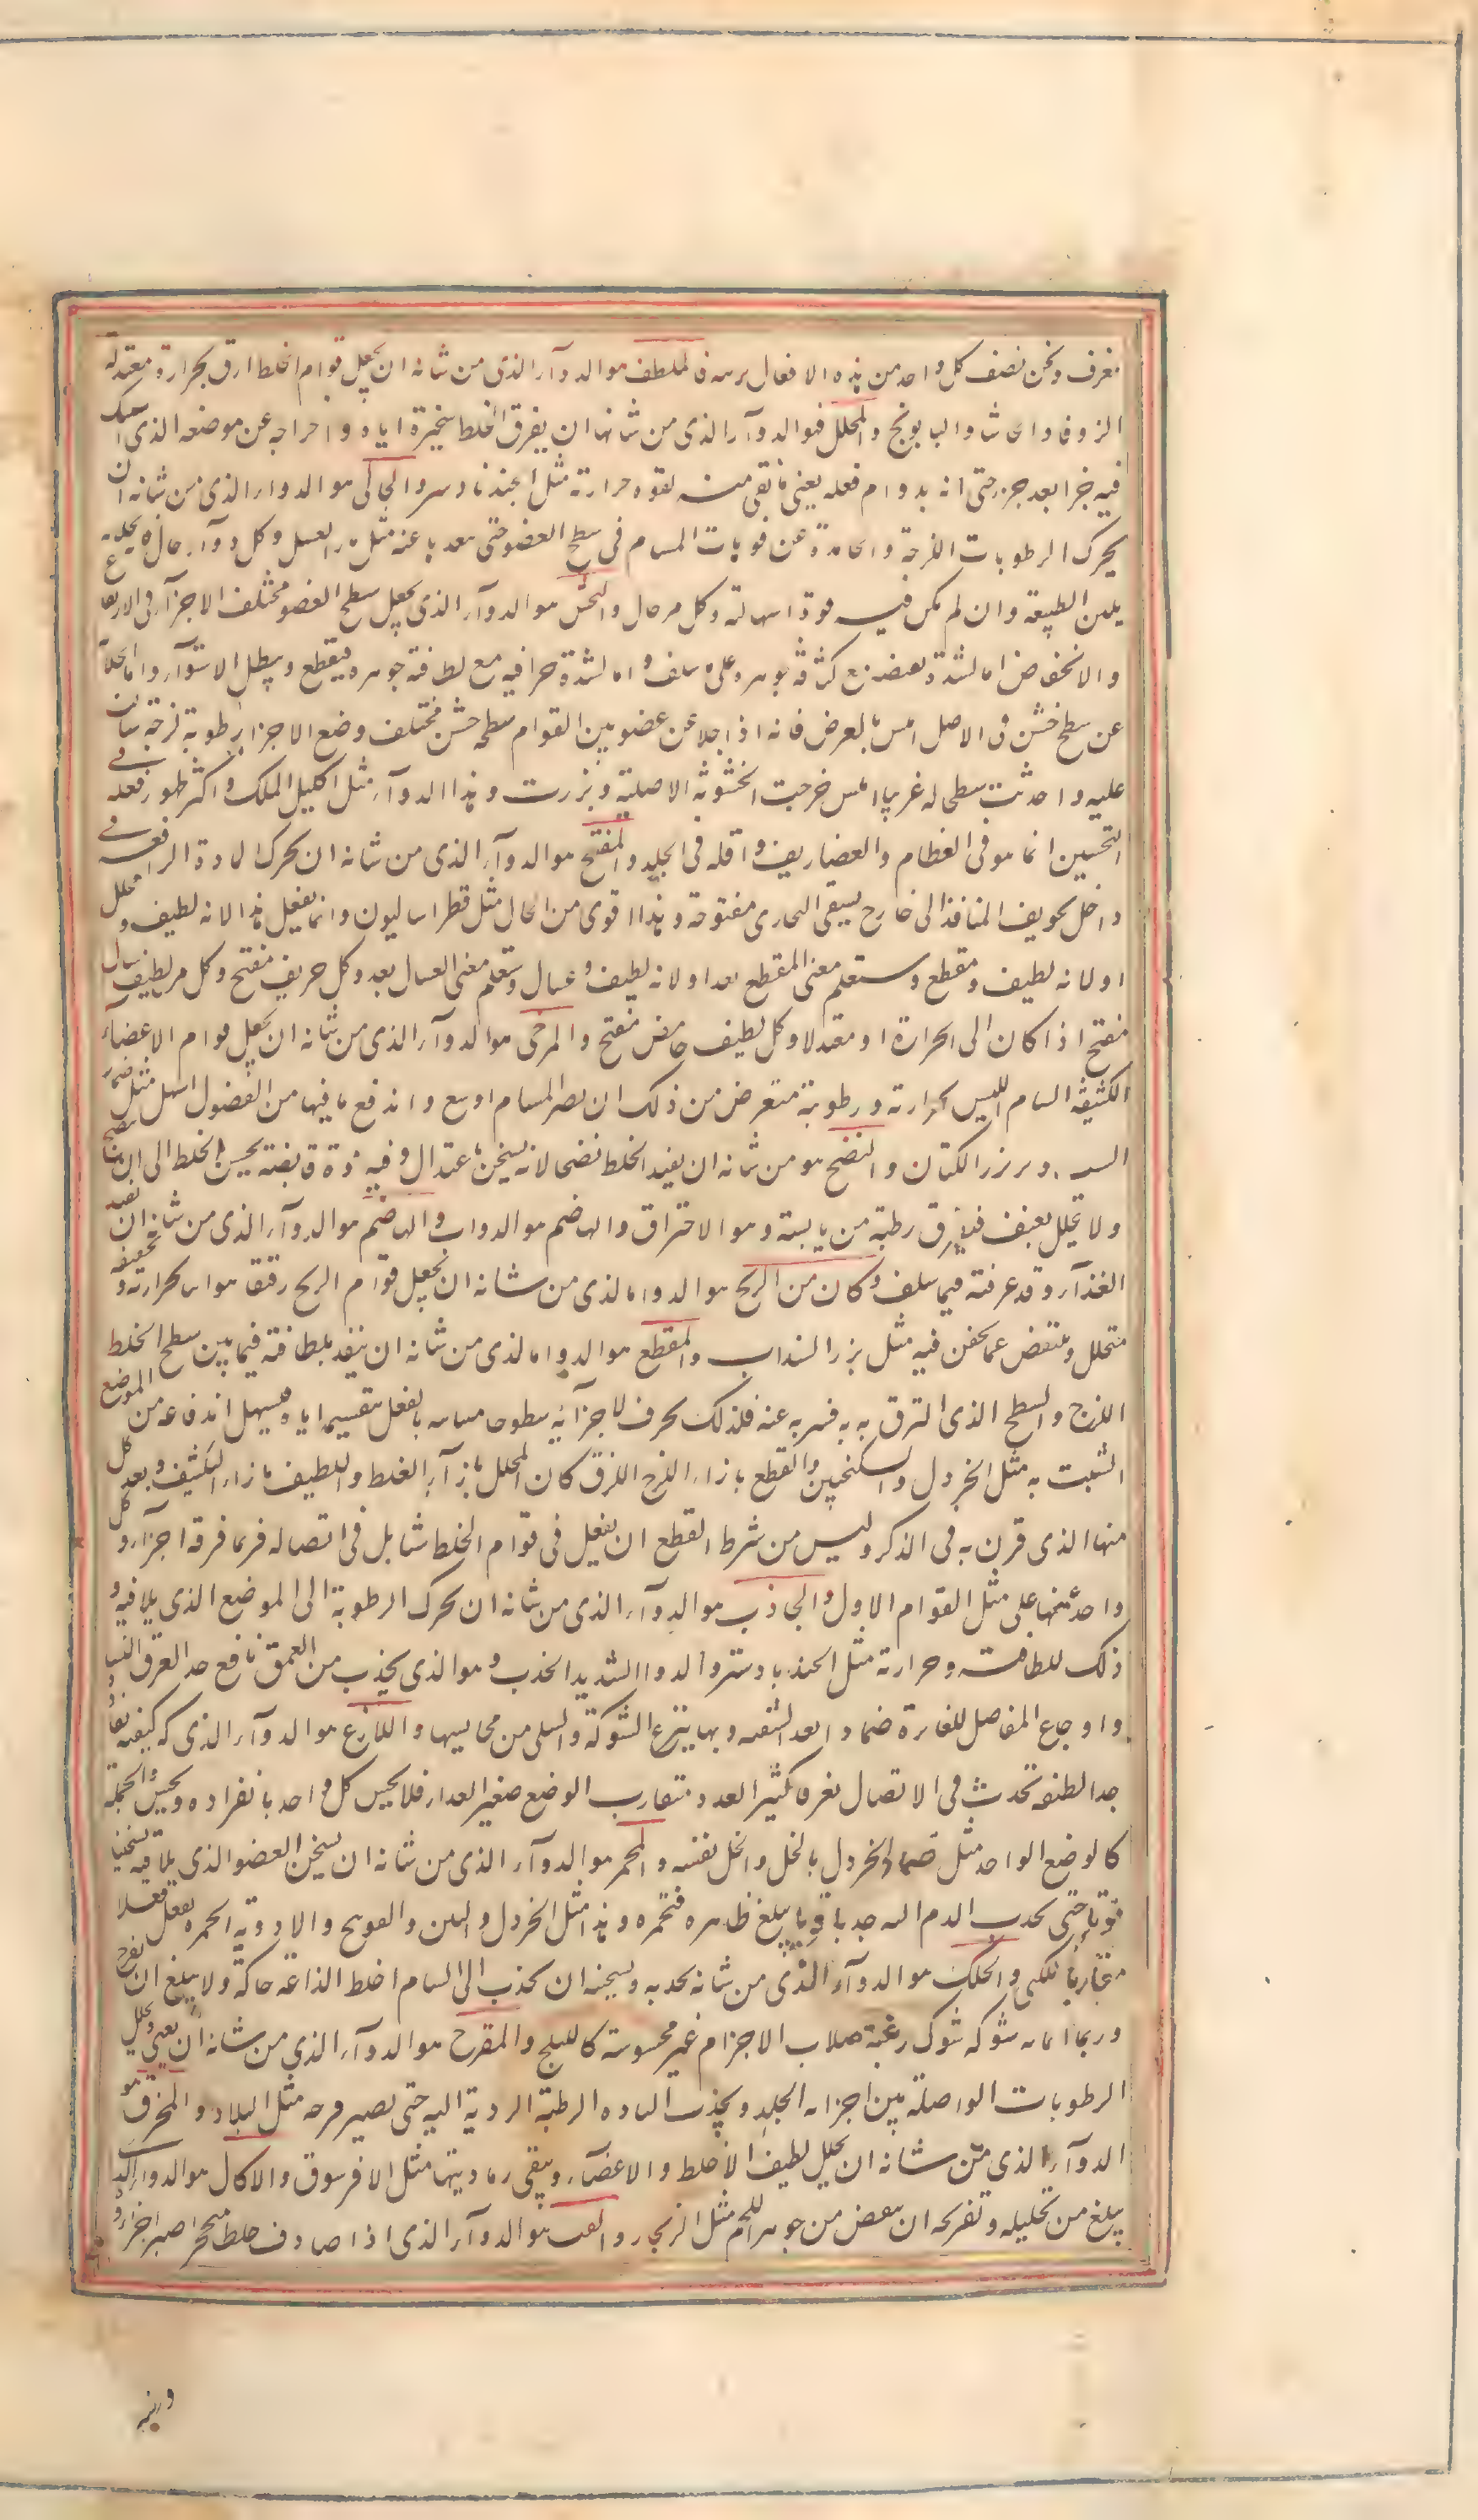 نعرف ونحن نصف كل واحد من هذه الافعال برسمه فالملطف هو الدوآء الذى من شانه ان يجعل قوام الخلط ارق بحرارة معتدلة
الزوفا والحاشا والبابونج والمحلل فهو الدوآء الذى من شانه ان يفرق الخلط بتبخيره اياه واخراجه عن موضعه الذى اشتبك
فيه جزا بعد جزء حتى انه بدوام فعله يفنى ما يفنى منه بقوه حرارته مثل الجندبادستر والجالى هو الدواء الذى من شانه ان
يحرك الرطوبات اللزجة والجامدة عن فوهات المسام فى سطح العضو حتى يبعدها عنه مثل ماء العسل وكل دوآء جال فانه بجلائه
يلين الطبيعة وان لم يكن فيه قوة اسهالية وكل مر جال والمخشن هو الدوآء الذى يجعل سطح العضو مختلف الاجزآء فى الارتفاع
والانخفاض اما لشدة تقبيضه مع كثافة جوهره على ما سلف واما لشدة حرافته مع لطافة جوهره فيقطع ويبطل الاستوآء واما لجلائه
عن سطح خشن فى الاصل املس بالعرض فانه اذا جلا عن عضو متين القوام سطحه خشن مختلف وضع الاجزا رطوبة لزجة سالت
عليه واحدثت سطحا له غريبا املس خرجت الخشونة الاصلية وبرزت وهذا الدوآء مثل اكليل الملك واكثر ظهور فعله فى
التخشين انما هو فى العظام والغضاريف واقله فى الجلد والمفتح هو الدوآء الذى من شانه ان يحرك المادة الواقعة فى
داخل تجويف المنافذ الى خارج ليبقى المجارى مفتوحة وهذا اقوى من الجالى مثل فطراساليون وانما يفعل هذا لانه لطيف ومحلل
او لانه لطيف ومقطع وستعلم معنى المقطع بعد او لانه لطيف وغسال وستعلم معنى الغسال بعد وكل حريف مفتح وكل مر لطيف سيال
مفتح اذا كان الى الحرارة او معتدلا وكل لطيف حامض مفتح والمرخى هو الدوآء الذى من شانه ان يجعل قوام الاعضآء
الكثيفة المسام الين بحرارته ورطوبته فيعرض من ذلك ان يصير المسام اوسع واندفع ما فيها من الفضول اسهل مثل ضماد
وبزر الكتان والمنضج هو من شانه ان يفيد الخلط نضجا لانه يسخن باعتدال وفيه قوة قابضة يحبس الخلط الى ان ينضج
ولا يتحلل بعنف فيفرق رطبه من يابسه وهو الاحتراق والهاضم هو الدوآء الذى من شانه ان يفيد
الغذآء وقد عرفته فيما سلف وكاسر الريح هو الدواء الذى من شانه ان يجعل قوام الريح رقيقا هوائيا بحرارته وتجفيفه
فيتحلل وينتفض عما يحتقن فيه مثل بزر السنداب والمقطع هو الدواء الذى من شانه ان ينفذ بلطافته فيما بين سطح الخلط
اللزج والسطح الذى التزق به فيبريه عنه فلذلك يحدث لاجزائه سطوحا متباينة بالفعل بتقسيمه اياه فيسهل اندفاعه من الموضع
المتشبث به مثل الخردل والسكنجبين والمقطع بازاء اللزج اللزق كما ان المحلل بازآء الغليظ والملطف بازاء الكثيف وبعد كل
منها الذى قرن به فى الذكر وليس من شرط المقطع ان يفعل فى قوام الخلط شيا بل فى اتصاله فربما فرقه اجزآء وكل
واحد منها على مثل القوام الاول والجاذب هو الدوآء الذى من شانه ان يحرك الرطوبة الى الموضع الذى يلاقيه و
ذلك للطافته وحرارته مثل الجندبادستر والدواء الشديد الجذب هو الذى يجذب من العمق نافع جدا لعرق النسا
واوجاع المفاصل الغائرة ضمادا بعد التنقية وبها ينزع الشوكة والسلى من محابسها واللاذع هو الدوآء الذى له كيفية نفاذة
جدا لطيفة تحدث فى الاتصال تفرقا كثير العدد متقارب الوضع صغير المقدار فلا يحس كل واحد بانفراده ويحس الجملة
كالوضع الواحد مثل ضماد الخردل بالخل والخل نفسه والمحمر هو الدوآء الذى من شانه ان يسخن العضو الذى يلاقيه تسخينا
قويا حتى يجذب الدم اليه جذبا قويا يبلغ ظاهره فيحمره وهذا مثل الخردل والتين والفودنج والادوية المحمرة تفعل فعلا
مقاربا للكى والمحكك هو الدوآء الذى من شانه بجذبه وتسخينه ان يجذب الى المسام اخلاطا لذاعة حاكة ولا يبلغ ان يقرح
وربما اعانه شوك زغبية صلاب الاجرام غير محسوسة كالكبيكج والمقرح هو الدوآء الذى من شانه ان يفنى ويحلل
الرطوبات الواصلة بين اجزاء الجلد ويجذب المادة الرطبة الردية اليه حتى يصير قرحة مثل البلادر والمحرق هو
الدوآء الذى من شانه ان يحلل لطيف الاخلاط والاعضآء ويبقى رماديتها مثل الافرسون والاكال هو الدواء الذى
يبلغ من تحليله وتقريحه ان ينقص من جوهر اللحم مثل الزنجار والمفتت هو الدوآء الذى اذا صادف خلطا متحجرا صغر اجزاءه و